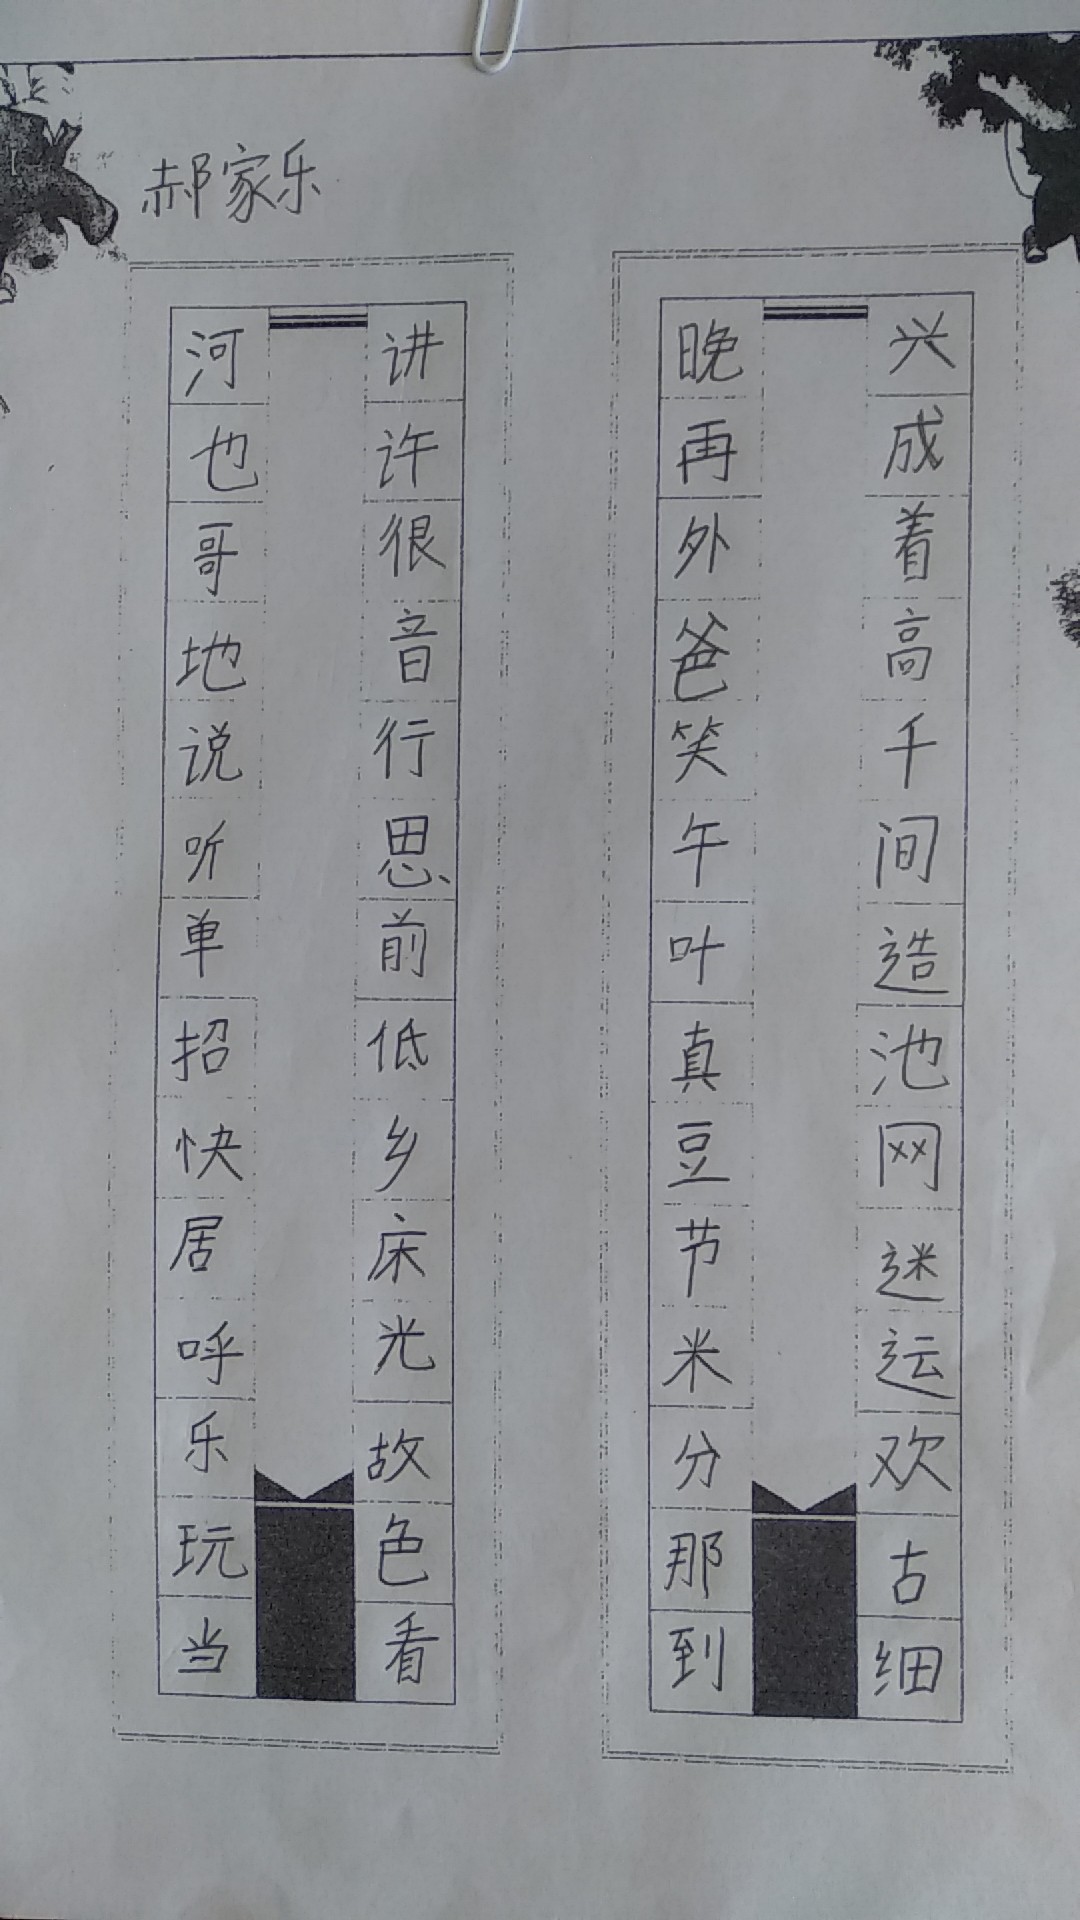 郝家乐
河也哥地说听单招快居呼乐玩当
讲许很音行思前低乡床光故色看
晚再外爸笑午叶真豆节米分那到
兴成着高千间造池网迷运欢古细